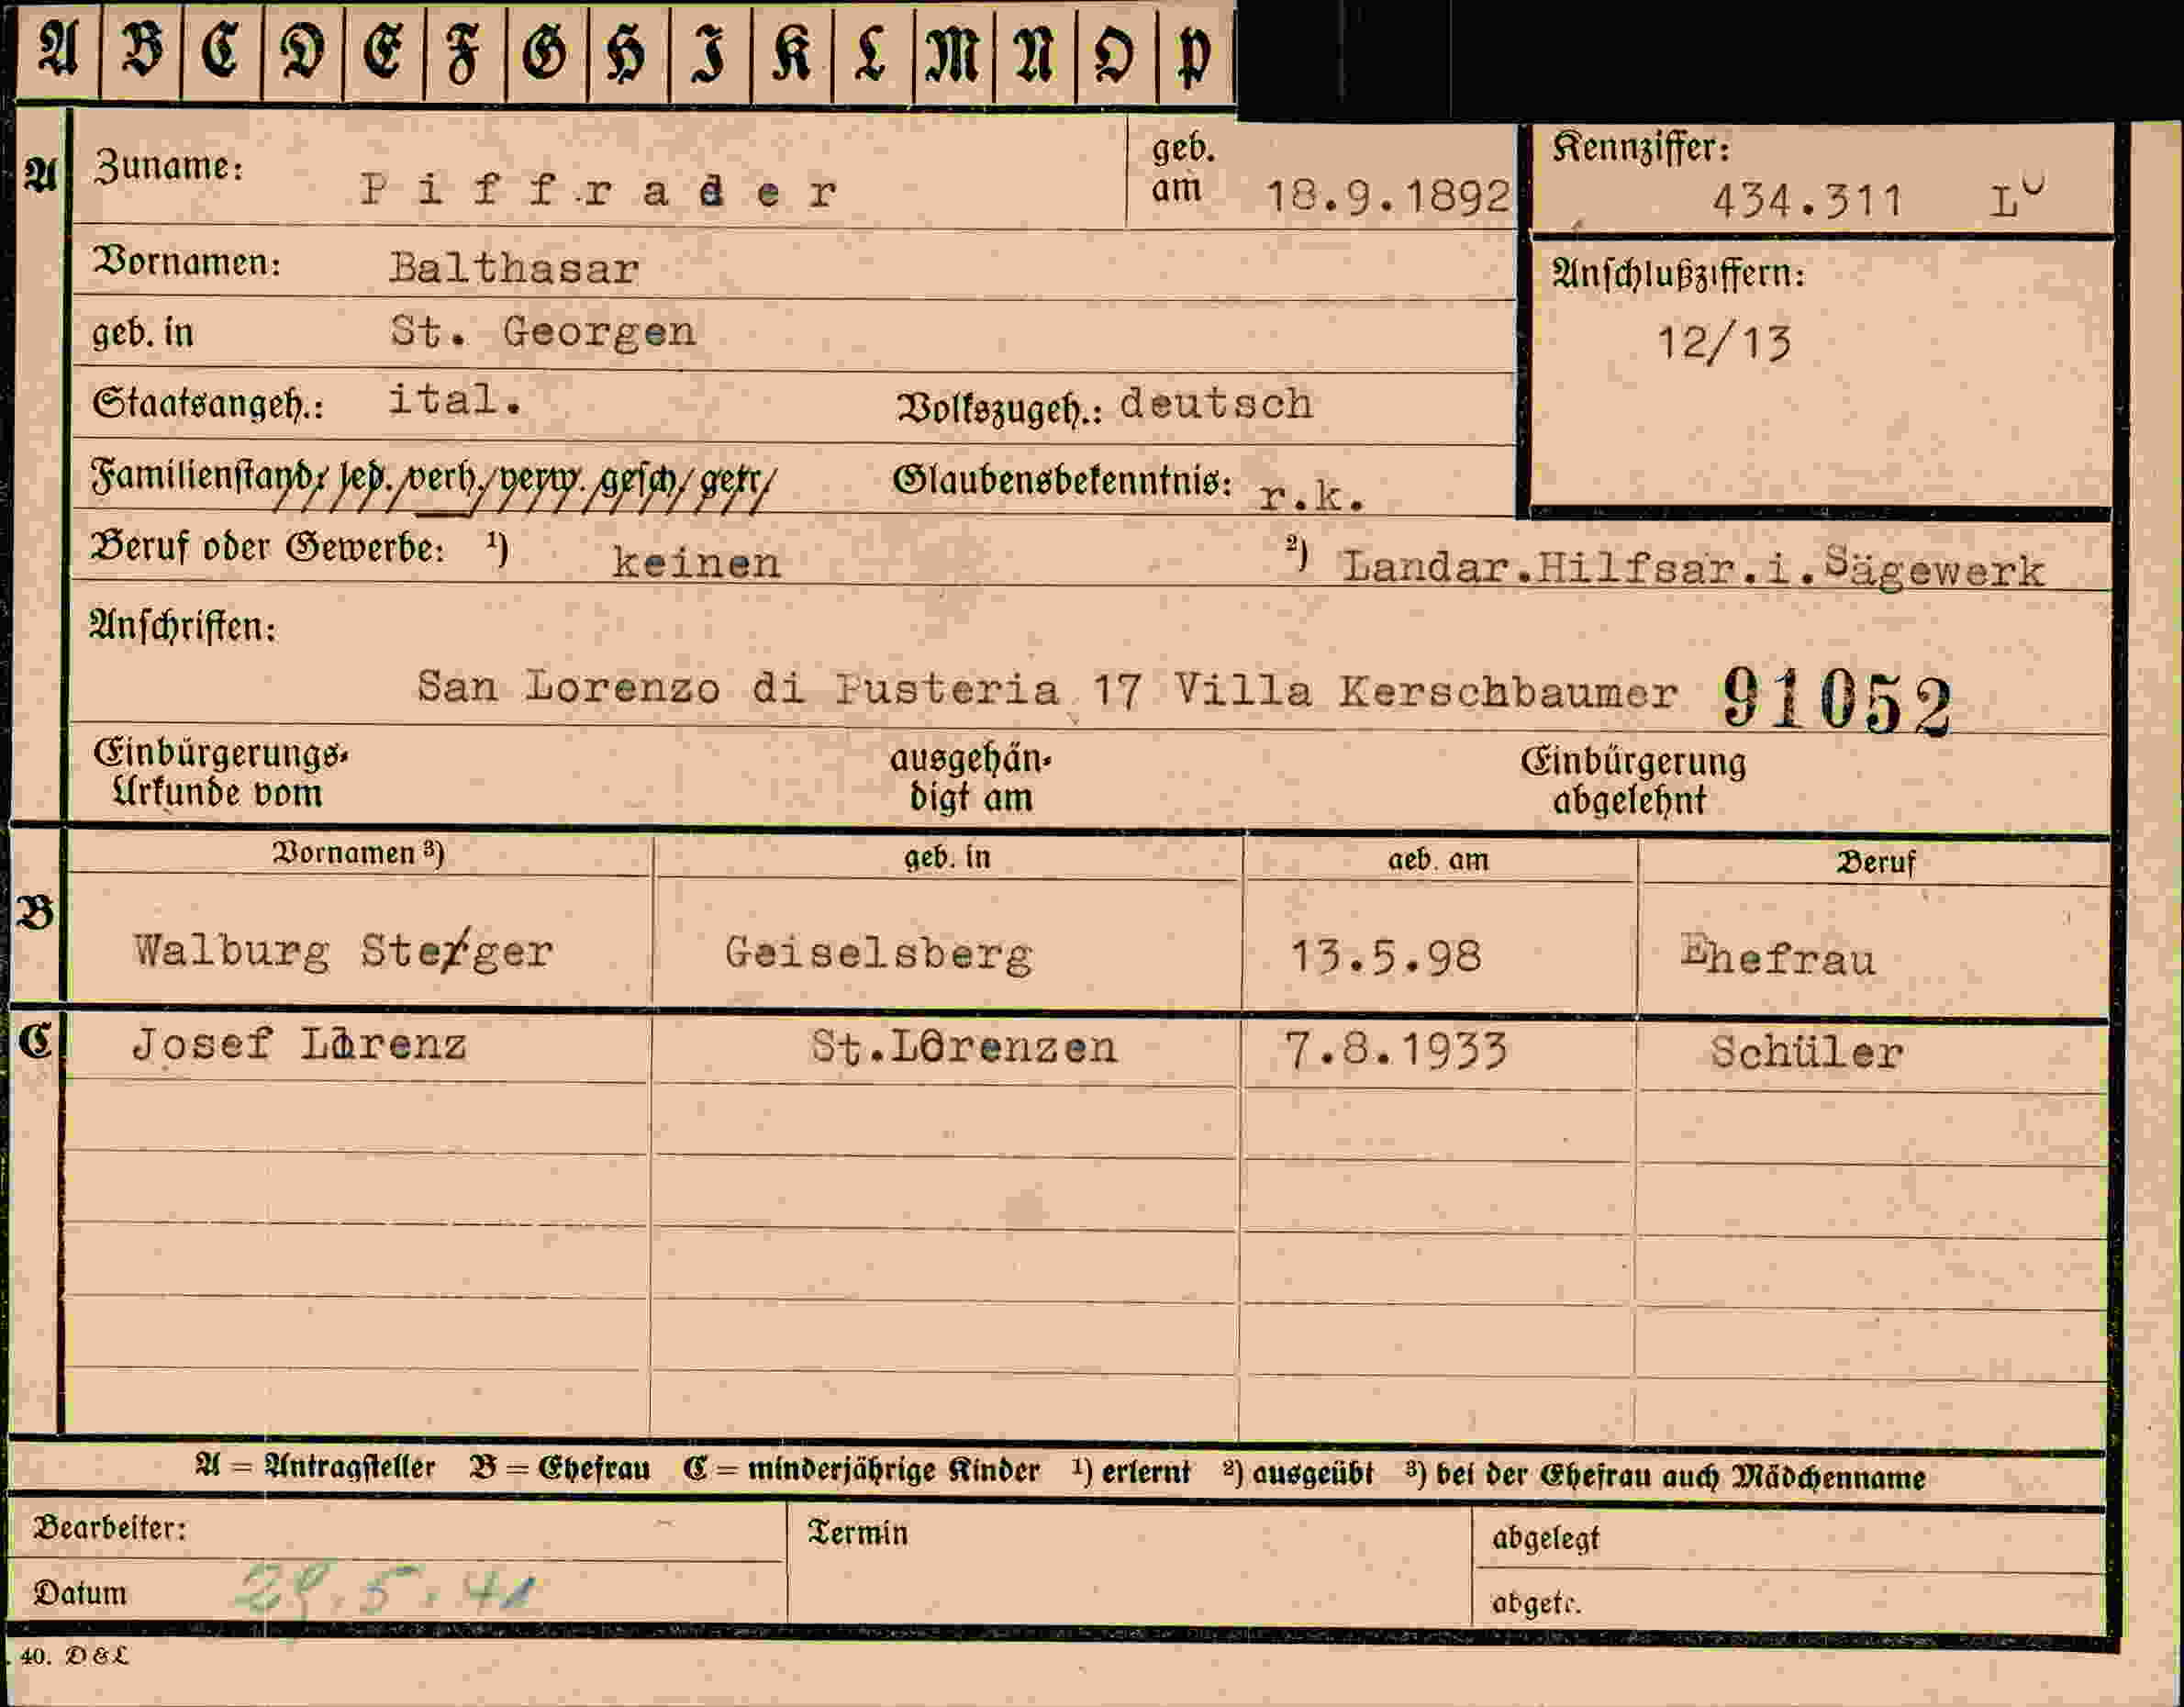 A B C D E F G H I K L M N O P
A Zuname: Piffrader geb. am 18.9.1892 Kennziffer: 434.311 L
Vornamen: Balthasar Anschlußziffern:
geb. in St. Georgen 12/13
Staatsangeh.: ital. Volkszugeh.: deutsch
Familienstand: led. verh. verw. gesch. getr. Glaubensbekenntnis: r.k.
Beruf oder Gewerbe: ¹) keinen ²) Landar.Hilfsar.i.Sägewerk
Anschriften:
San Lorenzo di Pusteria 17 Villa Kerschbaumer 91052
Einbürgerungs-
Urkunde vom
ausgehän-
digt am
Einbürgerung
abgelehnt
Vornamen ³) geb. in geb. am Beruf
B Walburg Steger Geiselsberg 13.5.98 Ehefrau
C Josef Lorenz St.Lorenzen 7.8.1933 Schüler
A = Antragsteller B = Ehefrau C = minderjährige Kinder ¹) erlernt ²) ausgeübt ³) bei der Ehefrau auch Mädchenname
Bearbeiter: Termin abgelegt
Datum 29.5.41 abgetr.
40. D&L